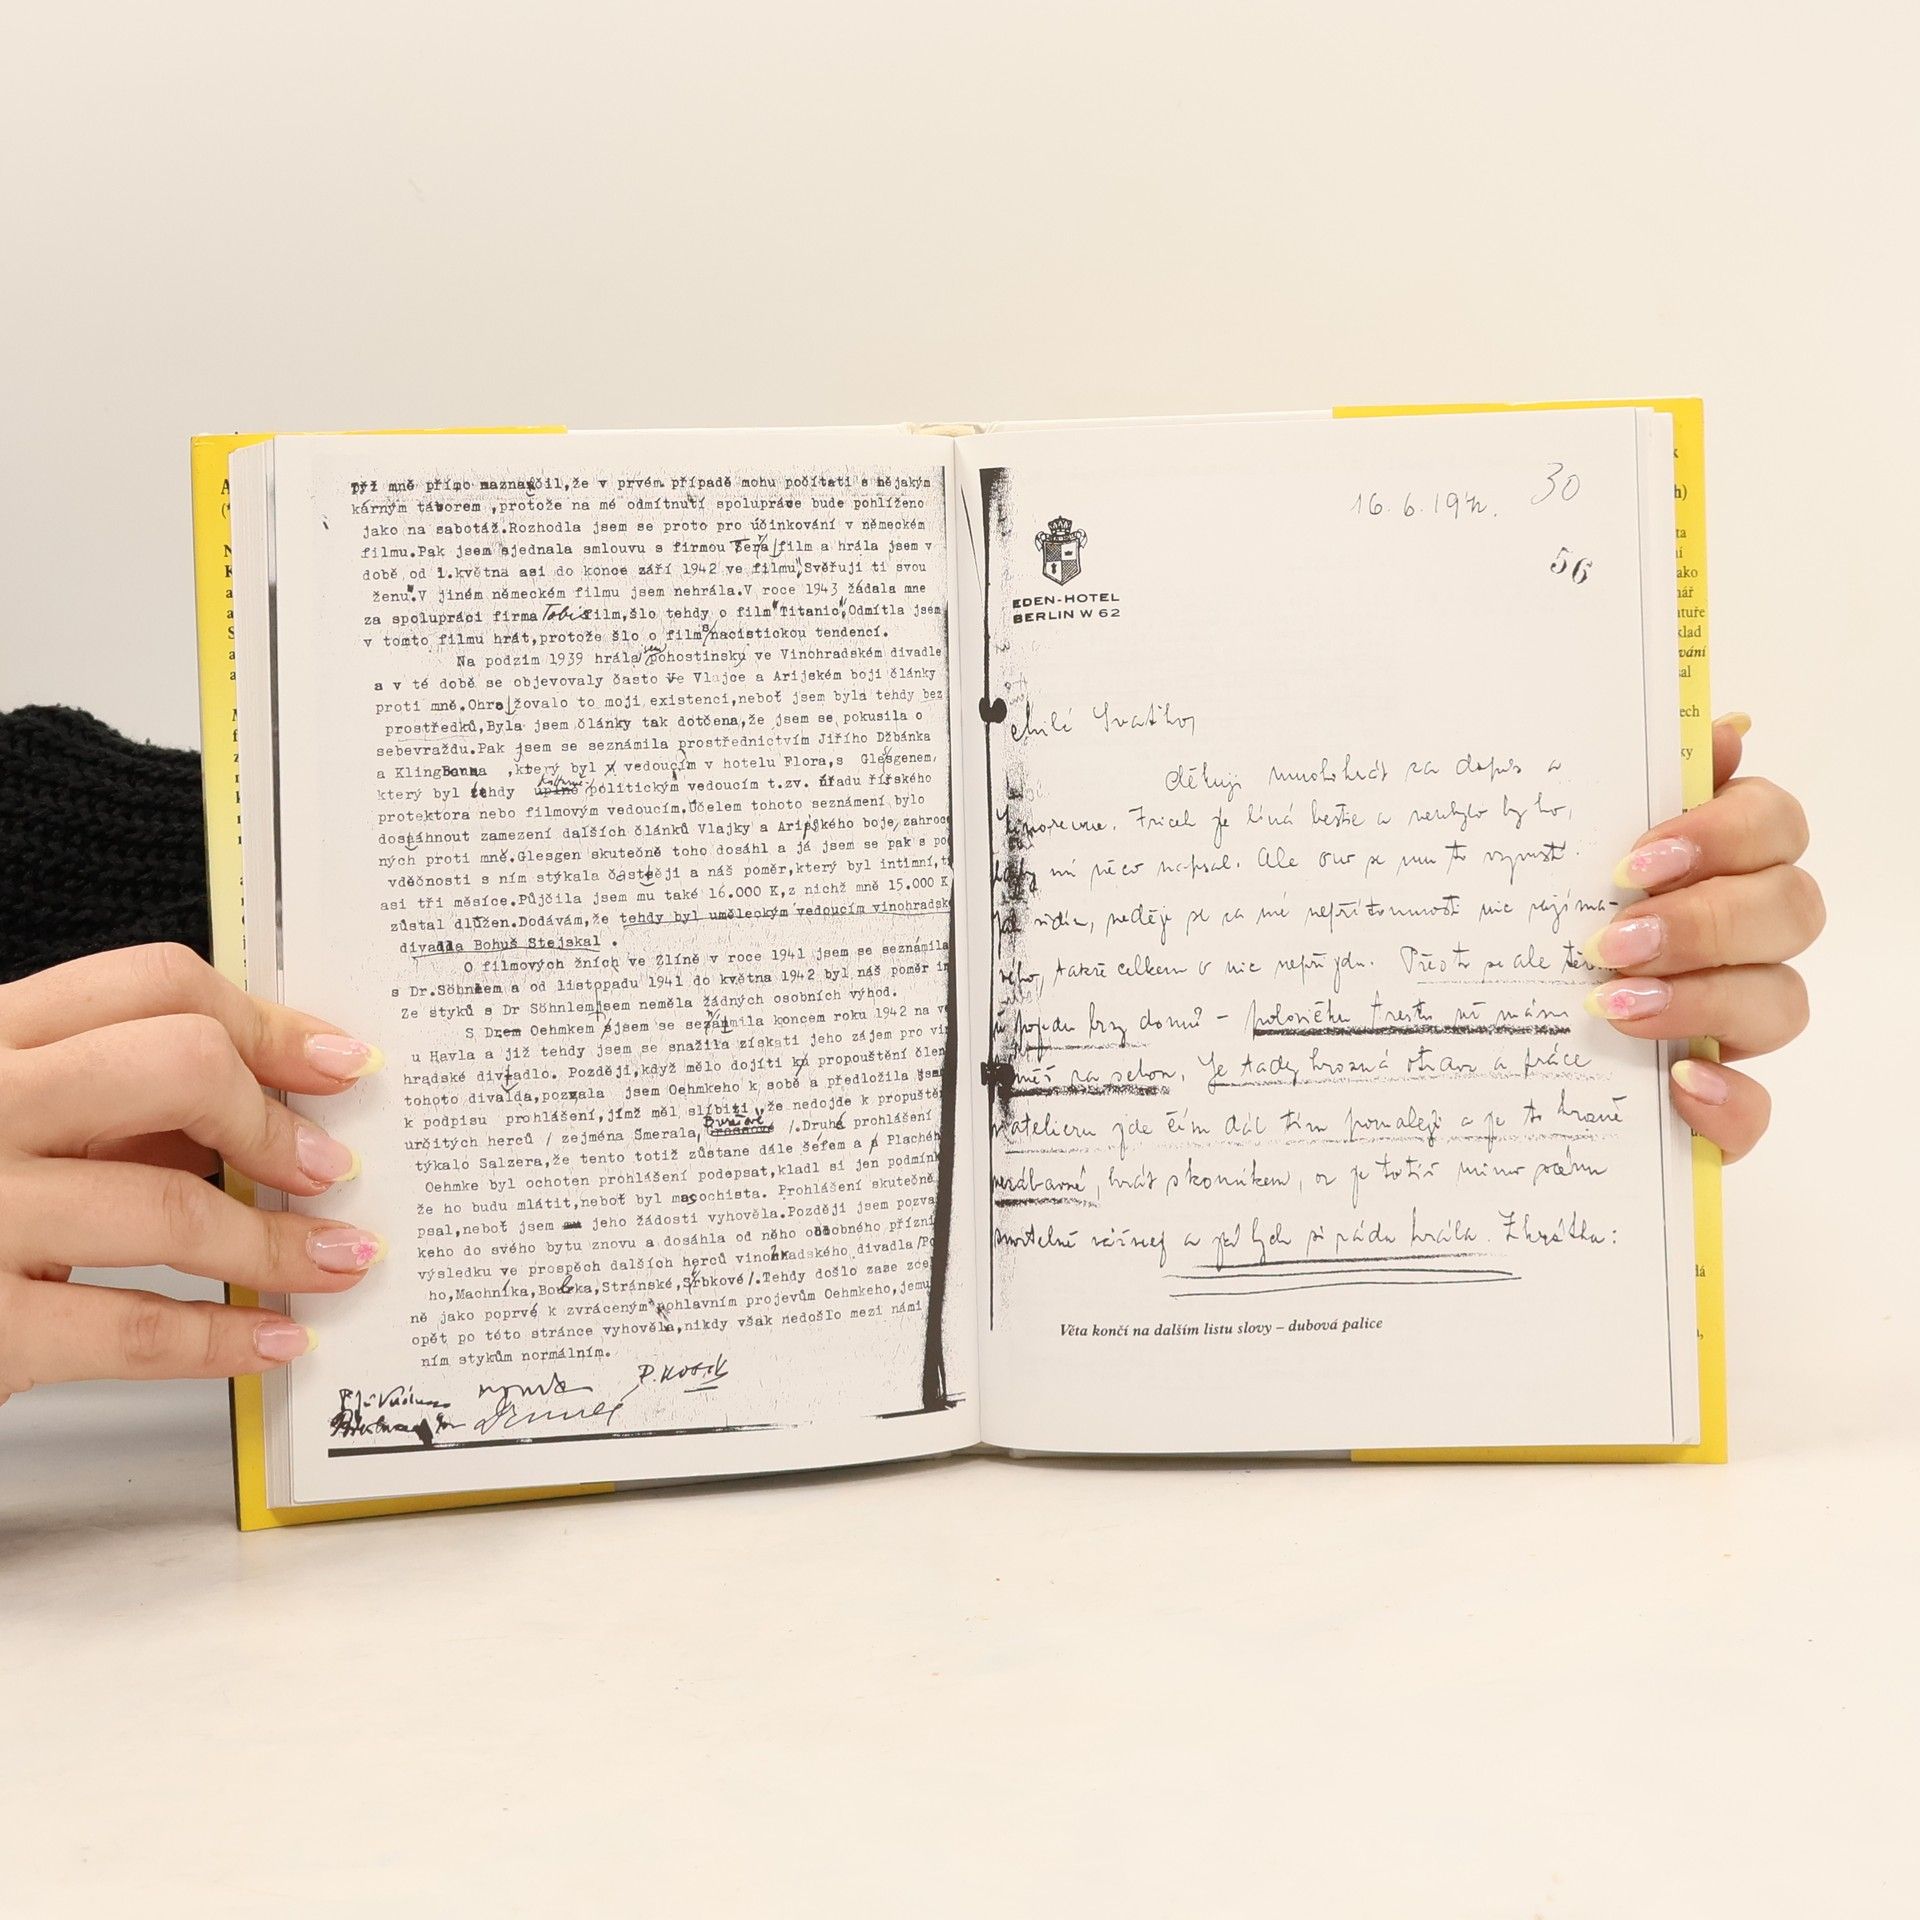 Týž mně přímo naznačil,že v prvém případě mohu počítati s nějakým
kárným táborem ,protože na mé odmítnutí spolupráce bude pohlíženo
jako na sabotáž.Rozhodla jsem se proto pro účinkování v německém
filmu.Pak jsem sjednala smlouvu s firmou Terra film a hrála jsem v
době od 1.května asi do konce září 1942 ve filmu„Svěřuji ti svou
ženu".V jiném německém filmu jsem nehrála.V roce 1943 žádala mne
za spolupráci firma Tobis film,šlo tehdy o film"Titanic".Odmítla jsem
v tomto filmu hrát,protože šlo o film s nacistickou tendencí.
Na podzim 1939 hrála jsem pohostinsky ve Vinohradském divadle
a v té době se objevovaly často ve Vlajce a Arijském boji články
proti mně.Ohrožovalo to moji existenci,neboť jsem byla tehdy bez
prostředků,Byla jsem články tak dotčena,že jsem se pokusila o
sebevraždu.Pak jsem se seznámila prostřednictvím Jiřího Džbánka
a ,který byl vedoucím v hotelu Flora,s Glesgenem,
který byl tehdy kulturně politickým vedoucím t.zv. úřadu říšského
protektora nebo filmovým vedoucím.Účelem tohoto seznámení bylo
dosáhnout zamezení dalších článků Vlajky a Arijského boje,zahroce
ných proti mně.Glesgen skutečně toho dosáhl a já jsem se pak s po
vděčnosti s ním stýkala častěji a náš poměr,který byl intimní,t
asi tři měsíce.Půjčila jsem mu také 16.000 K,z nichž mně 15.000 K
zůstal dlužen.Dodávám,že tehdy byl uměleckým vedoucím vinohradsk
divadla Bohuš Stejskal .
O filmových žních ve Zlíně v roce 1941 jsem se seznámila
s Dr.Söhnlem a od listopadu 1941 do května 1942 byl náš poměr in
Ze styků s Dr Söhnlem jsem neměla žádných osobních výhod.
S Drem Oehmkem jsem se seznámila koncem roku 1942 na ve
u Havla a již tehdy jsem se snažila získati jeho zájem pro vi
hradské divadlo. Později,když mělo dojíti ku propouštění člen
tohoto divalda,pozvala jsem Oehmkeho k sobě a předložila jsem
k podpisu prohlášení,jímž měl slíbiti,že nedojde k propuště
určitých herců / zejména Šmerala, /.Druhé prohlášení
týkalo Salzera,že tento totiž zůstane dále šéfem a p Plachéh
Oehmke byl ochoten prohlášení podepsat,kladl si jen podmínk
že ho budu mlátit,neboť byl masochista. Prohlášení skutečně
psal,neboť jsem jeho žádosti vyhověla.Později jsem pozva
keho do svého bytu znovu a dosáhla od něho osobného přízni
výsledku ve prospěch dalších herců vinohradského divadla/Po
ho,Machníka,Bolka,Stránské,Srbkové/.Tehdy došlo zase zce
ně jako poprvé k zvráceným pohlavním projevům Oehmkeho,jemu
opět po této stránce vyhověla,nikdy však nedošlo mezi námi
ním stykům normálním.
P. Kosík
16. 6. 1942. 30
56
EDEN-HOTEL
BERLIN W 62
Milé Svaťho,
děkuji mnohokrát za dopis a
Fricek je líná bestie a nenbylo by ho,
kdyby mi něco napsal. Ale on se mu to
jak vidím, neděje se za mé nepřítomnosti nic zajíma-
vého, takže celkem o nic nepřijdu. Přesto se ale těším
pojedu brzy domů – polovičku trestu už mám
za sebou. Je tady hrozná otrava a práce
v atelieru jde čím dál tím pomaleji a je to hrozně
nezábavné, hrát s komikem, je totiž mimo scénu
smrtelně vážný a jak bych si ráda hrála. Zkrátka:
Věta končí na dalším listu slovy – dubová palice